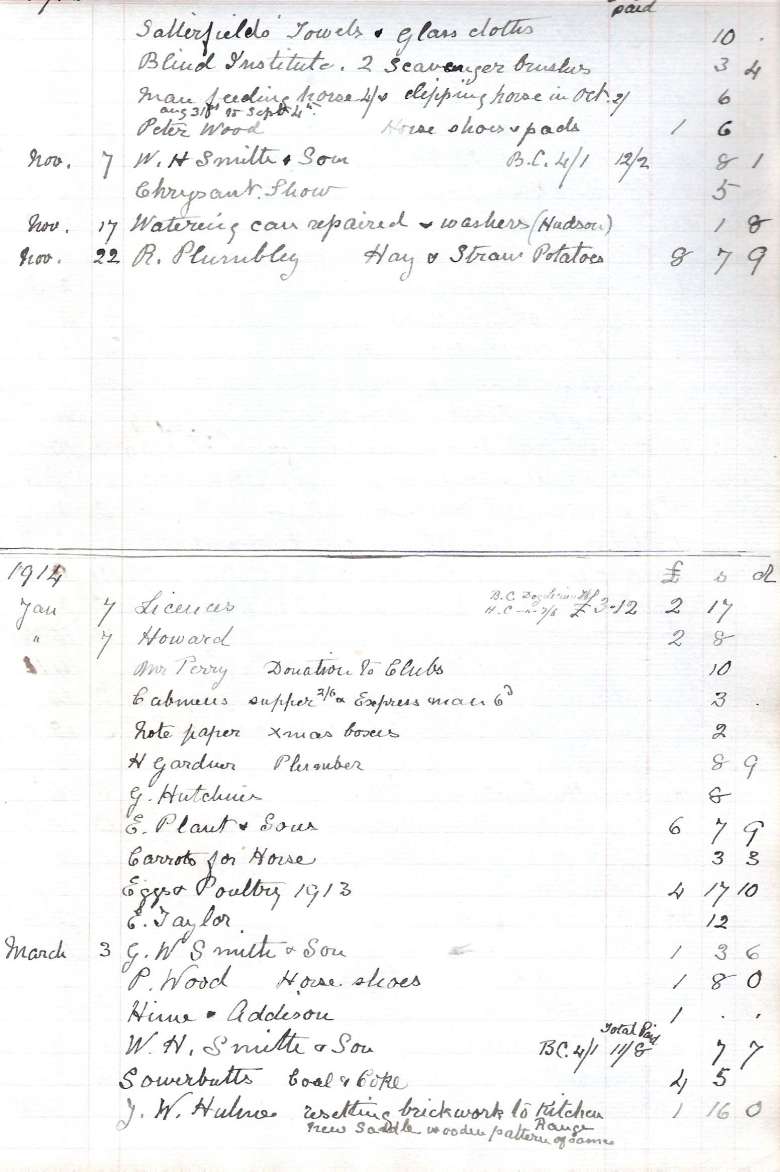 paid
Satterfields Towels & Glass cloths 10 .
Blind Institute. 2 Scavenger brushes 3 4
Man feeding horse 4/s clipping horse in Oct. 2/ 6
Aug 31st to Sept 4th
Peter Wood Horse shoes & pads 1 6
Nov. 7 W. H Smith & Son B.C. 4/1 12/2 8 1
Chrysant. Show 5
Nov. 17 Watering can repaired & washers (Hudson) 1 8
Nov. 22 R. Plumbley Hay & Straw Potatoes 8 7 9
1914 £ s d
Jan 7 Licences B.C. H.C. 7/6 £3-12 2 17
" 7 Howard 2 8
Mr Perry Donation to Clubs 10
Cabmens supper 2/6 & Express man 6d 3 .
Note paper xmas boxes 2
H Gardner Plumber 8 9
G. Hutchins 8
E. Plant & Sons 6 7 9
Carrots for Horse 3 3
Eggs & Poultry 1913 4 17 10
E. Taylor 12
March 3 G. W Smith & Son 1 3 6
P. Wood Horse shoes 1 8 0
Hime & Addison 1 . .
Total Paid
W. H. Smith & Son B.C. 4/1 11/8 7 7
Sowerbutts Coal & Coke 4 5
J. W. Hulme resetting brickwork to Kitchen Range 1 16 0
New Saddle wooden pattern of same